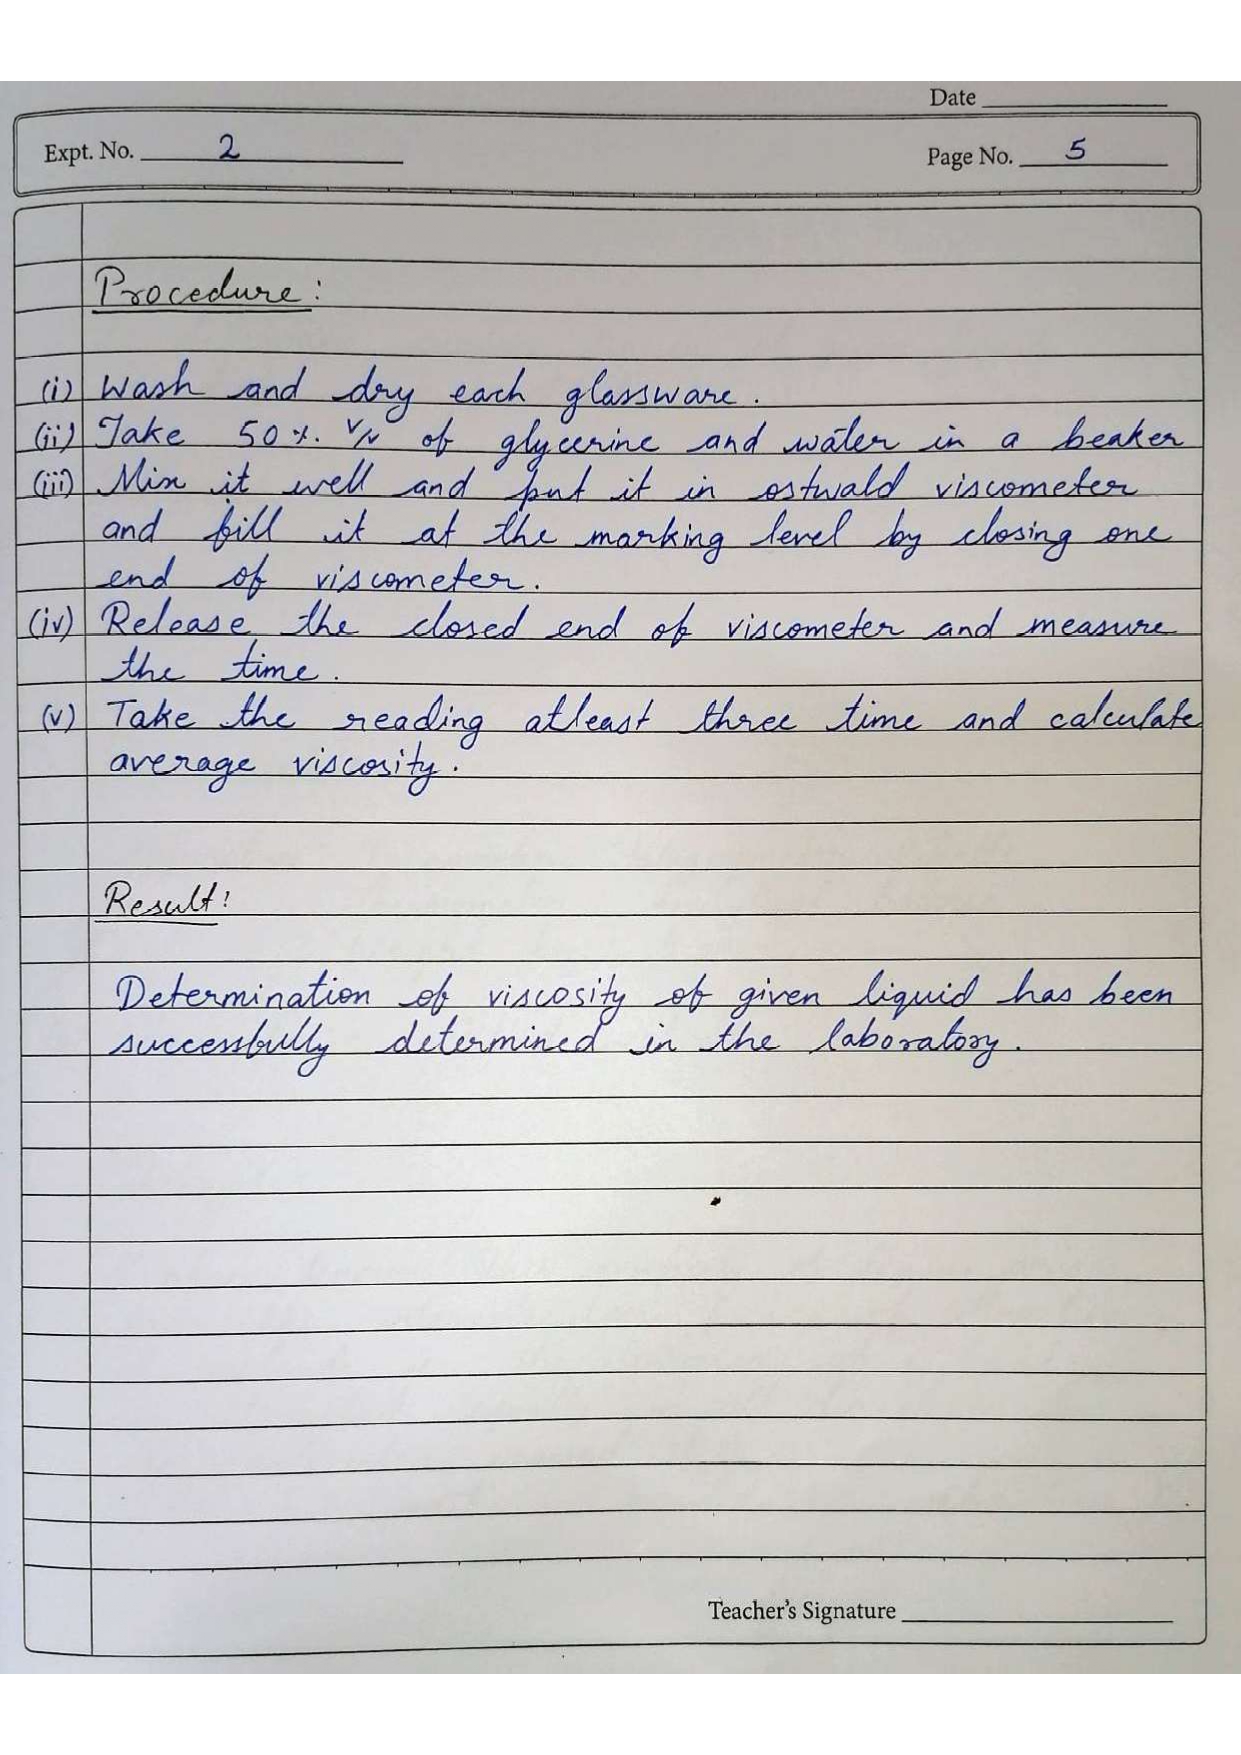 Date
Expt. No. 2
Page No. 5
Procedure:
(i) Wash and dry each glassware.
(ii) Take 50 %. V/V of glycerine and water in a beaker
(iii) Mix it well and put it in ostwald viscometer
and fill it at the marking level by closing one
end of viscometer.
(iv) Release the closed end of viscometer and measure
the time.
(v) Take the reading atleast three time and calculate
average viscosity.
Result:
Determination of viscosity of given liquid has been
successfully determined in the laboratory.
Teacher's Signature